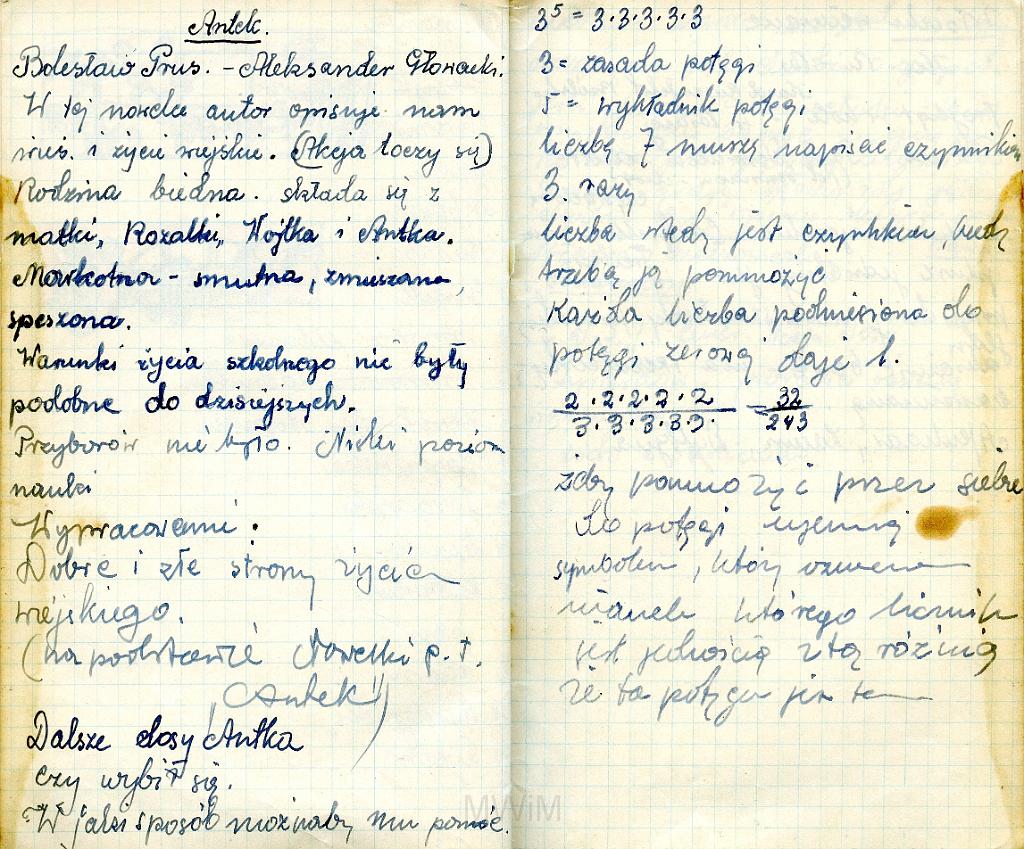 Antek.
Bolesław Prus. - Aleksander Głowacki.
W tej nowelce autor opisuje nam
wieś i życie wiejskie. (Akcja toczy się)
Rodzina biedna. składa się z
matki, Rozalki, Wojtka i Antka.
Markotna - smutna, zmieszana,
speszona.
Warunki życia szkolnego nie były
podobne do dzisiejszych.
Przyborów nie było. Niski poziom
nauki
Wypracowanie:
Dobre i złe strony życia
wiejskiego.
(na podstawie Nowelki p.t.
"Antek")
Dalsze losy Antka
czy wybił się.
W jaki sposób możnaby mu pomóc.
3⁵ = 3·3·3·3·3
3 = zasada potęgi
5 = wykładnik potęgi
liczbę 7 muszę napisać czynnikiem
3. razy
liczba wtedy jest czynnikiem, kiedy
trzeba ją pomnożyć
Każda liczba podniesiona do
potęgi zerowej daje 1.
2·2·2·2·2 / 3·3·3·3·3 = 32/243
żeby pomnożyć przez siebie
Do potęgi ujemnej
symbolem, który
ułamek którego licznik
jest jednością z tą różnicą
że ta potęga jest
MWiM